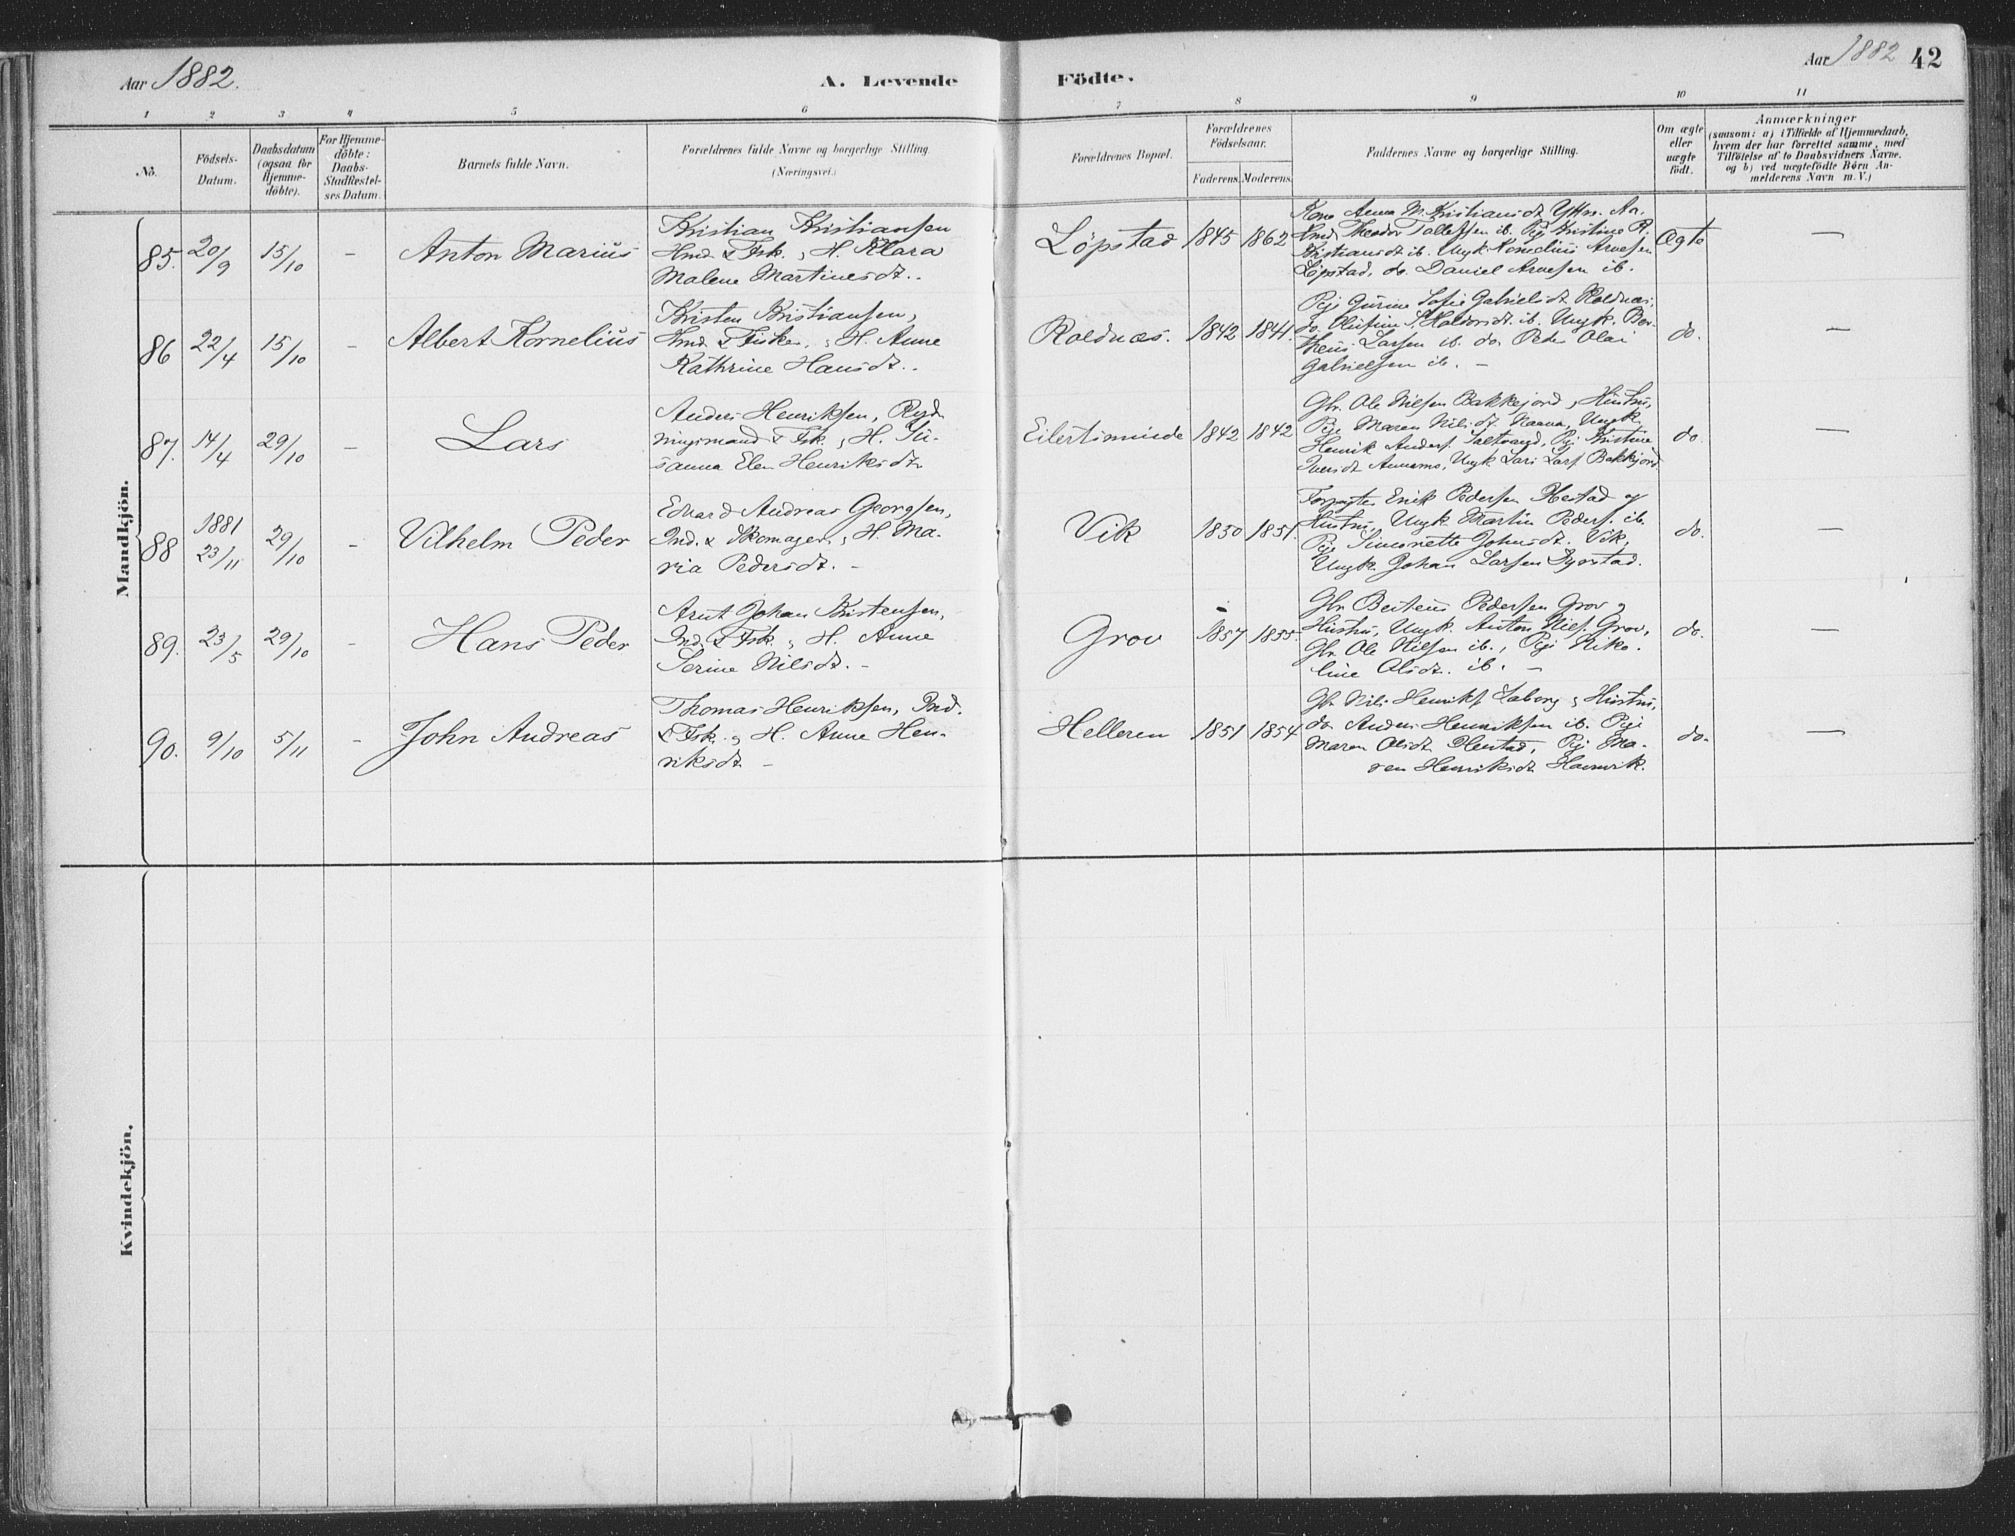 Aar 1882. A. Levende Födte. Aar 1882 42
1 2 3 4 5 6 7 8 9 10 11
No.
Födsels-Datum.
Daabsdatum (ogsaa for Hjemme-döbte).
For Hjemme-döbte: Daabs-Stadfæstel-ses Datum.
Barnets fulde Navn.
Forældrenes fulde Navne og borgerlige Stilling.
(Næringsvei.)
Forældrenes Bopæl.
Forældrenes Födselsaar.
Faderens. Moderens.
Faddernes Navne og borgerlige Stilling.
Om ægte eller uægte födt.
Anmærkninger
(saasom: a) i Tilfælde af Hjemmedaab,
hvem der har forrettet samme, med
Tilföielse af to Daabsvidners Navne.
og b) ved uægtefödte Börn An-
melderens Navn m. V.)
Mandkjön.
85. 20/9 15/10 - Anton Marius
Kristian Kristiansen
Hmd & Fsk., H. Klara
Malene Martinesdt..
Löpstad 1845 1862
Kone Anna M. Kristiansdt
Hmd. Theodor Tollefsen ib. Pige Kristine R.
Kristiansdt ib. Ungk. Kornelius Arnesen
Löpstad, do. Daniel Arnesen ib.
Ægte —
86 22/4 15/10 - Albert Kornelius
Kristen Kristiansen,
Hmd & Fisker, H. Anne
Kathrine Hansdt..
Roldnæs. 1842 1841
Pige Gurine Sofie Gabrielsdt Roldnæs,
do. Olufine Haldorsdt. ib. Ungk. Ber-
theus Larsen ib. do Peder Olai
Gabrielsen ib. -
do. —
87. 14/4 29/10 Lars
Anders Henriksen, Ryd-
ningsmand & Fsk., H. Su-
sanna Elen Henriksdt.
Eilertsminde 1842 1842
Gbr. Ole Nilsen Bakkejord, Hustru,
Pige Maren Nilsdt. Ungk.
Henrik Anders. Pige Kristine
Iversdt Ungk. Lars Lars. Bakkejord
do —
88 1881 23/11 29/10 - Vilhelm Peder
Edvard Andreas Georgsen,
Ind. & Skomager, H. Ma-
ria Pedersdt. -
Vik 1850 1851.
Erik Pedersen Hestad og
Hustru, Ungk. Martin Peders. ib.
Pige Simonette Johnsdt. Vik,
Ungk. Johan Larsen
do. —
89. 23/5 29/10 - Hans Peder
Arnt Johan Kristensen,
Ind & Fsk., H. Anne
Serine Nilsdt. -
Grov 1857 1855
Gbr. Berteus Pedersen Grov og
Hustru, Ungk. Anton Nils. Grov,
Gbr. Ole Nilsen ib., Pige Niko-
line Olsdt. ib. -
do. —
90. 9/10 5/11 - John Andreas
Thomas Henriksen, Ind.
& Fsk. og H. Anne Hen-
riksdt. -
Helleren 1851 1854
Gbr. Nils Henriks. Saborg, Hustru,
do Anders Henriksen ib. Pige
Maren Olsdt Olestad, Pige Ma-
ren Henriksdt Havnvik.
do. —
Kvindekjön.